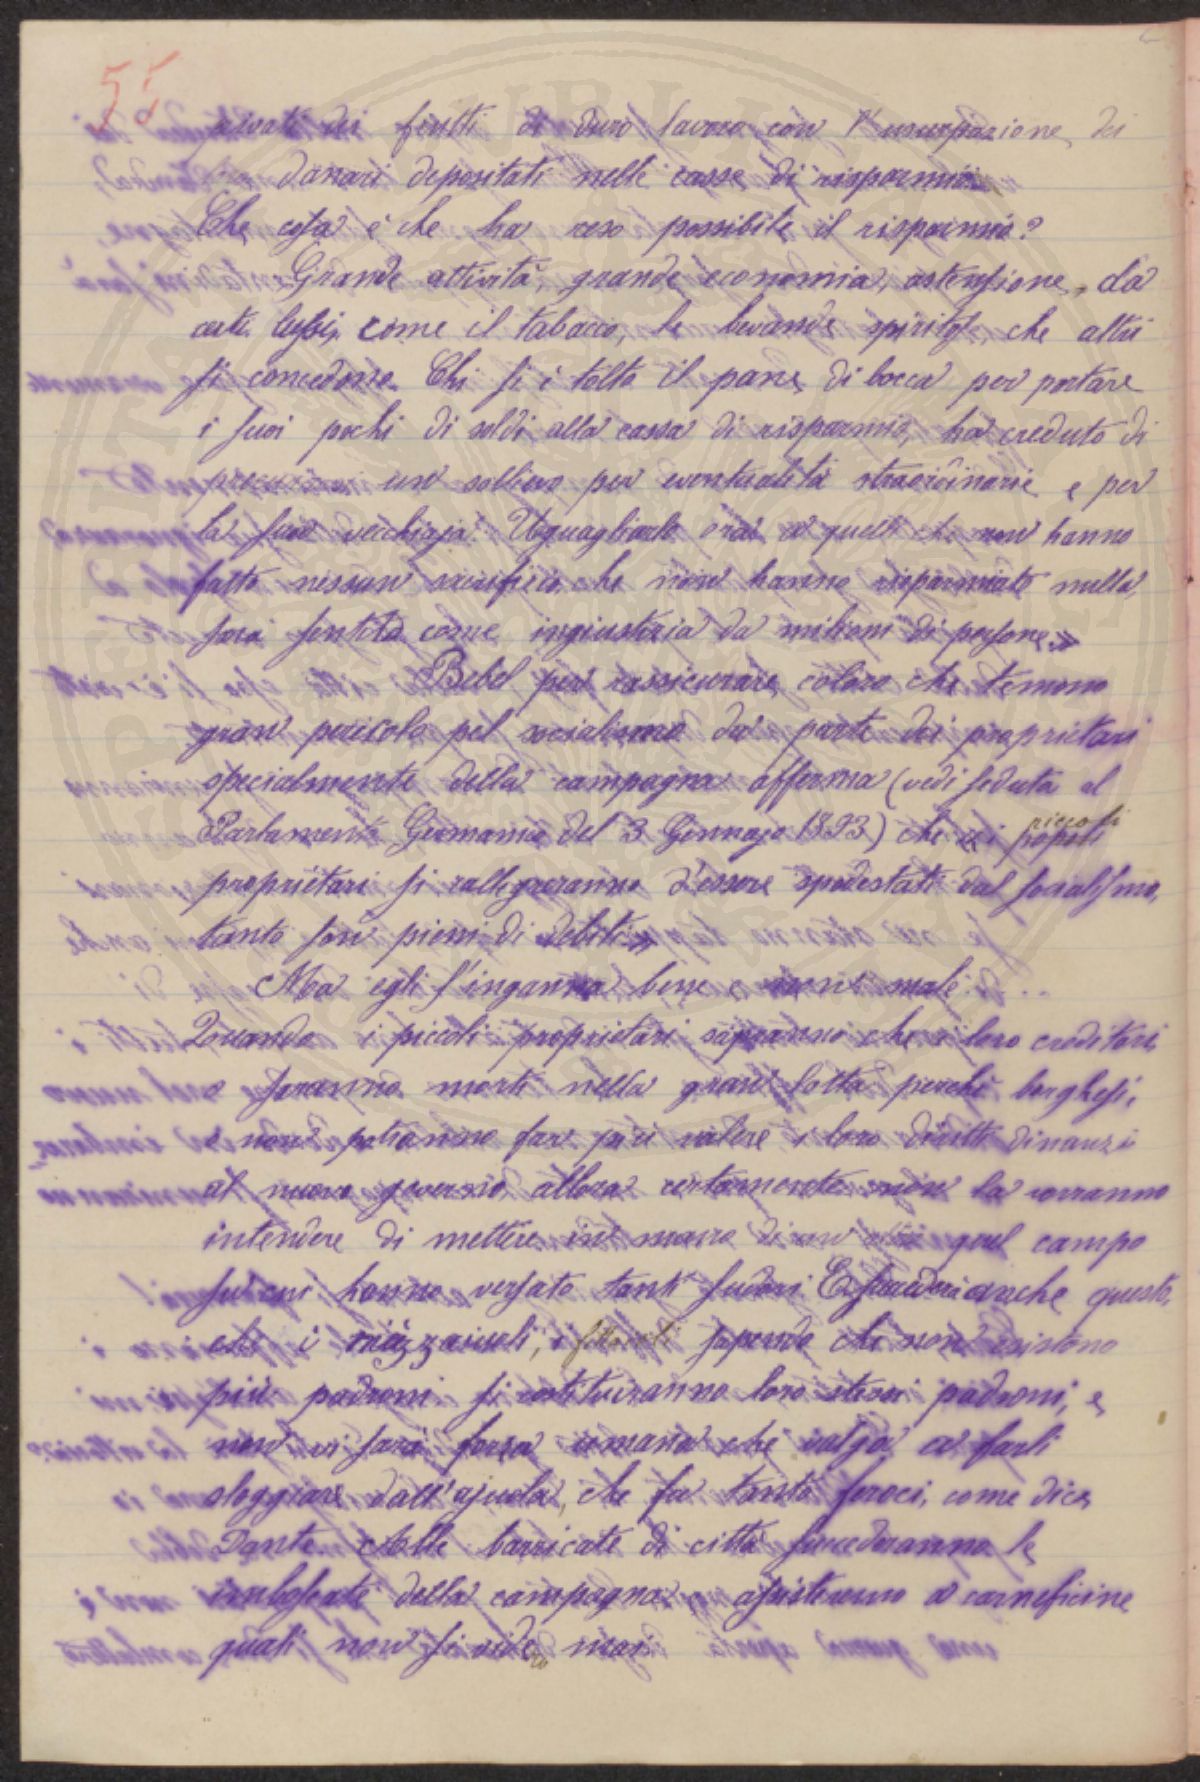 55
privati dei frutti di duro lavoro con l'usurpazione dei
danari depositati nelle casse di risparmio.
Che cosa è che ha reso possibile il risparmio?
Grande attività, grande economia, astensione da
certi lussi, come il tabacco, le bevande spiritose, che altri
si concedono. Chi si è tolto il pane di bocca per portare
i suoi pochi di soldi alla cassa di risparmio, ha creduto di
procurarsi un sollievo per eventualità straordinarie e per
la sua vecchiaja. Uguagliarlo ora a quelli che non hanno
fatto nessun sacrificio, che non hanno risparmiato nulla,
sarà sentito come ingiustizia da milioni di persone»
Bebel per rassicurare coloro che temono
gran pericolo pel socialismo da parte dei proprietari
specialmente della campagna afferma (vedi seduta al
Parlamento Germanico del 3 Gennajo 1893) che i piccoli
proprietari si rallegreranno d'essere spodestati dal socialismo,
tanto son pieni di debiti»
Ma egli s'inganna bene e non male.
Quando i piccoli proprietari sapranno che i loro creditori
o saranno morti nella gran lotta perchè borghesi,
o non potranno far più valere i loro diritti dinanzi
al nuovo governo, allora certamente non la vorranno
intendere di mettere in mano di quel campo
su cui hanno versato tanti sudori. E succederà anche questo,
che i mezzaiuoli, i fittaioli sapendo che non esistono
più padroni si costituiranno loro stessi padroni, e
non vi sarà forza umana che valga a farli
sloggiare dall'ajuola, che fa tanto feroci, come dice
Dante. Alle barricate di città succederanno le
imboscate della campagna e assisteremo a carneficine
quali non si videro mai.